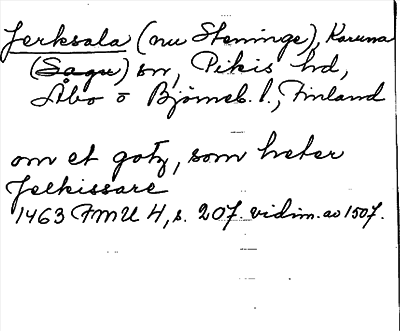 Jerksala (nu Steninge), Karuna
(Sagu) sn, Pikis hd,
Åbo o Björneb. l., Finland
om et gotz, som heter
Jelkissare
1463 FMU 4, s. 207. vidim. av 1507.